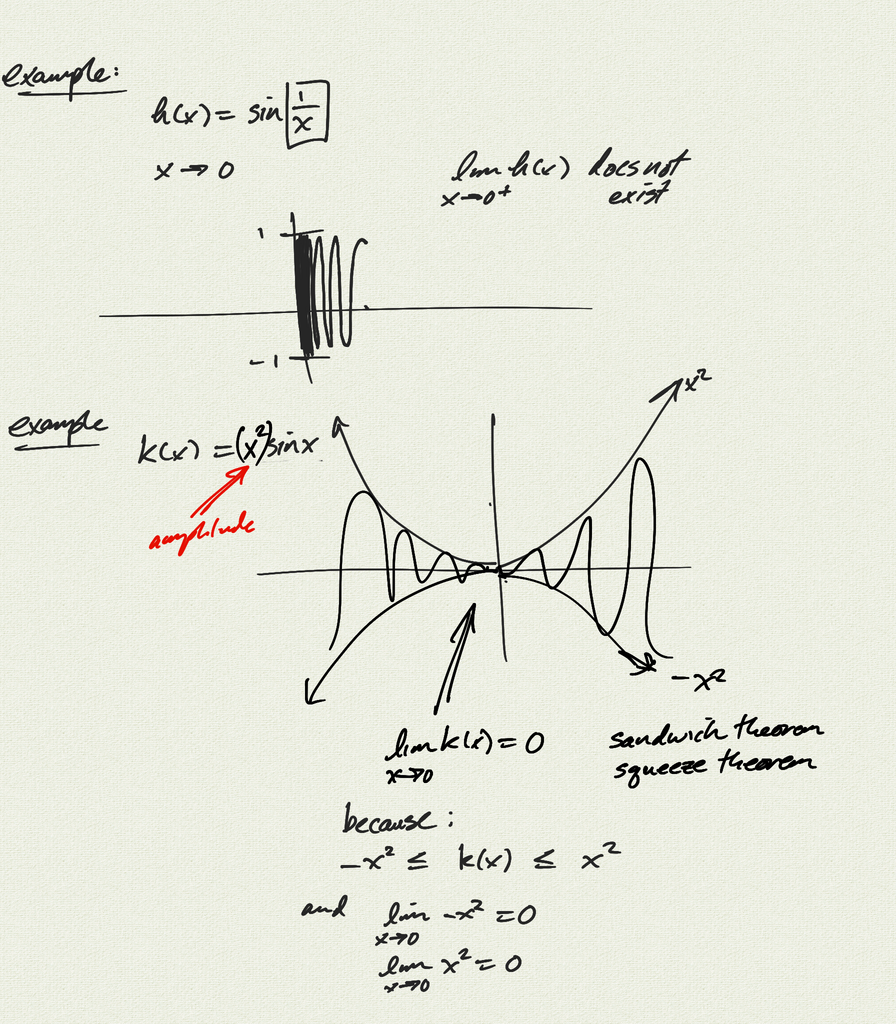 example:
h(x) = sin 1/x
x → 0
lim h(x) does not
x→0+ exist
1
-1
example
k(x) = (x²) sin x
amplitude
x²
-x²
lim k(x) = 0
x→0
sandwich theorem
squeeze theorem
because:
-x² ≤ k(x) ≤ x²
and lim -x² = 0
x→0
lim x² = 0
x→0